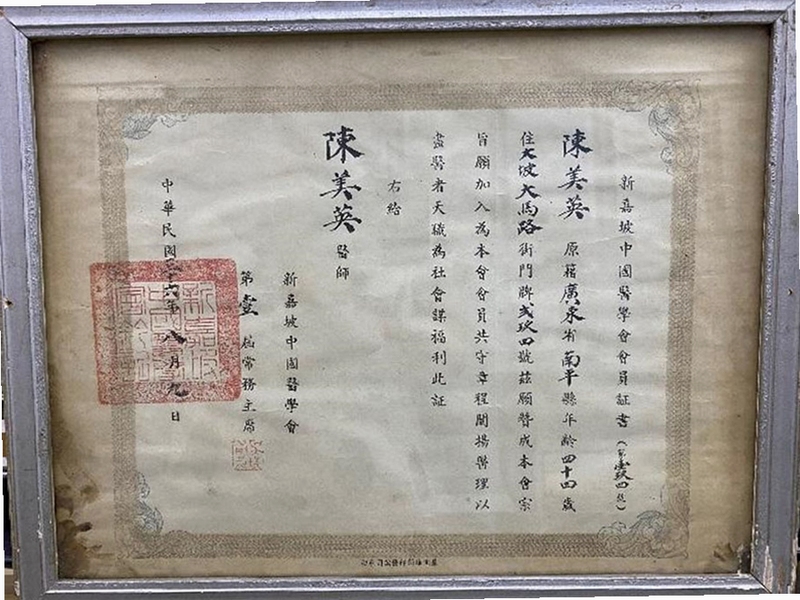 新嘉坡中國醫學會會員証書(第壹玖四號)
陳美英 原籍廣東省南平縣年齡四十四歲
住大坡大馬路街門牌弍玖四號茲願贊成本會宗
旨願加入為本會會員共守章程闡揚醫理以
盡醫者天職為社會謀福利此証
右給
陳美英醫師
新嘉坡中國醫學會
第壹屆常務主席
中華民國三十六年八月九日